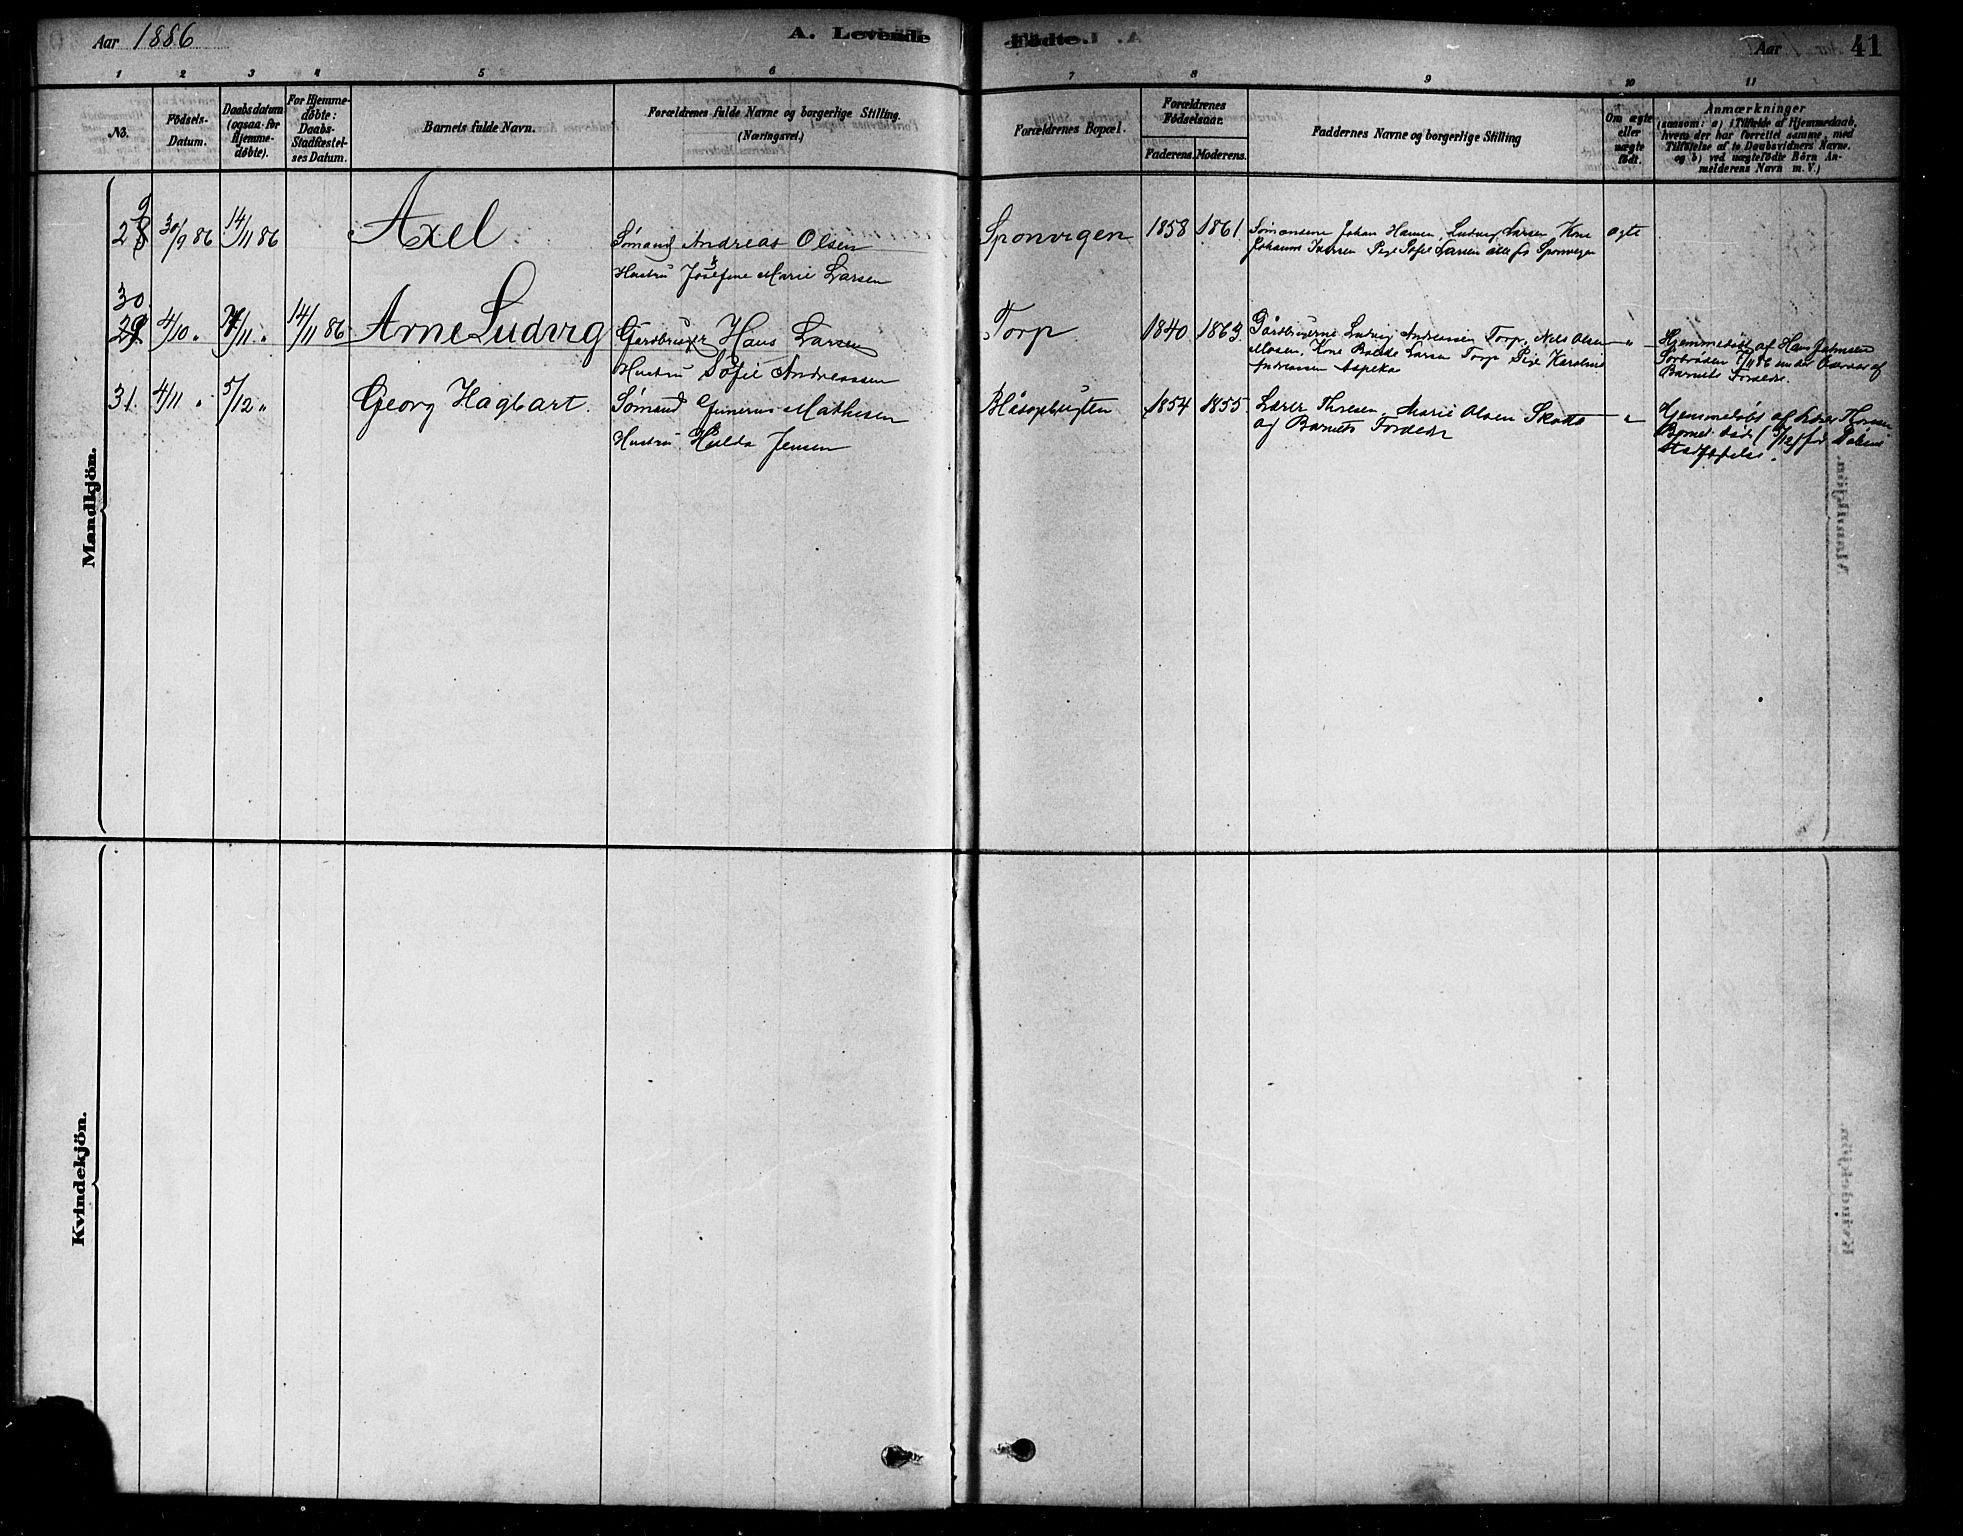 Aar 1886
A. Levende
Fødte.
Aar
41
1 2 3 4 5 6 7 8 9 10 11
No.
Fødsels-
Datum.
Daabsdatum
(ogsaa for
Hjemme-
døbte).
For Hjemme-
døbte:
Daabs-
Stadfæstel-
ses Datum.
Barnets fulde Navn.
Forældrenes fulde Navne og borgerlige Stilling.
(Næringsvei.)
Forældrenes Bopæl.
Forældrenes
Fødselsaar.
Faderens. Moderens.
Faddernes Navne og borgerlige Stilling
Om ægte
eller
uægte
født.
Anmærkninger
(saasom: a) i Tilfælde af Hjemmedaab,
hvem der har forrettet samme, med
Tilføielse af to Daabsvidners Navne.
og b) ved uægtefødte Børn An-
melderens Navn m. V.)
Mandkjön.
9
28 30/9 86 14/11 86 Axel Sømand Andreas Olsen
Hustru Josefine Marie Larsen
Sponvigen 1858 1861 Sømændene Johan Hansen, Ludvig Larsen Kone
Johanne Iversen Pige Sofie Larsen alle fra Sponvigen
ægte
30
29 4/10 " 7/11 " 14/11 86 Arne Ludvig Gårdbruger Hans Larsen
Hustru Sofie Andreassen
Torp 1840 1863 Gårdbrugerne Ludvig Andreassen Torp, Nils Olsen
Mosen, Kone Larsen Torp Pige Karoline
Andreassen Aspeka
"
Hjemmedøbt af Hans
7/11 86 under af
Barnets Forældre.
31. 4/11 " 5/12 " Georg Hagbart. Sømand Gunerius Mathisen
Hustru Hulda Jensen
Blåsopbugten 1854 1855 Lærer Thoresen, Marie Olsen Skotta
og Barnets Forældre
"
Hjemmedøbt af Lærer Thoresen
Barnet død ( /12) før Dåbens
Stadfæstelse.
Kvindekjön.